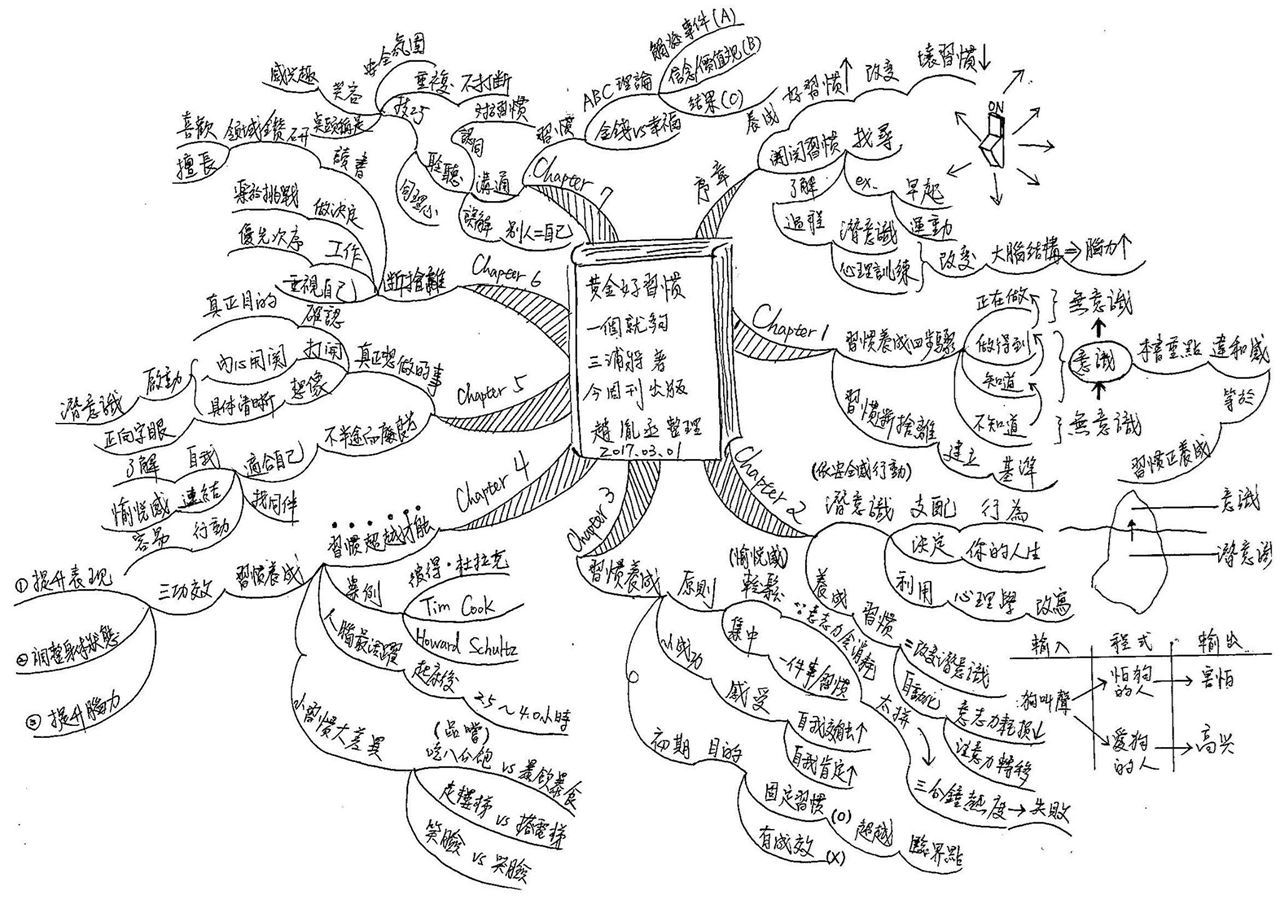 黃金好習慣
一個就夠
三浦將 著
今周刊出版
趙胤丞 整理
2017.03.01
序章
養成 好習慣↑ 改變 壞習慣↓
開関習慣 找尋
ON
了解
過程
ex.
早起
運動
潛意識
心理訓練
改變 大腦結構⇒腦力↑
Chapter 1
習慣養成四步驟
正在做
做得到
知道
不知道
無意識
意識
無意識
重點 違和感
等於
習慣正養成
習慣斷捨離
建立 基準
Chapter 2
(依安全感行動)
潛意識 支配 行為
決定 你的人生
利用 心理學 改寫
養成 習慣
=改變潛意識
自動化
意志力耗損↓
注意力轉移
意識
潛意識
輸入 程式 輸出
狗叫聲
怕狗的人
害怕
愛狗的人
高兴
Chapter 3
習慣養成
原則
(愉悅感)
輕鬆
∵意志力會消耗
太拚
三分鐘熱度→失敗
集中
一件事/習慣
小成功
感受
自我效能↑
自我肯定↑
初期 目的
固定習慣(O)
有成效(X)
超越 臨界點
Chapter 4
習慣超越才能
習慣養成
三功效
①提升表現
②調整身心狀態
③提升腦力
案例
彼得·杜拉克
Tim Cook
Howard Schultz
人腦最活躍
起床後
2.5～4.0小時
小習慣大差異
(品嚐)
吃八分飽 vs 暴飲暴食
走樓梯 vs 搭電梯
笑臉 vs 哭臉
Chapter 5
真正想做的事
確認
真正目的
打開
內心開関
啟動
潛意識
想像
具体清晰
正向字眼
不半途而廢良方
適合自己
自我
了解
連結
愉悅感
行動
容易
找同伴
Chapter 6
斷捨離
讀書
領域鑽研
喜歡
擅長
做決定
樂於挑戰
工作
優先次序
重視自己
Chapter 7
習慣
ABC理論
觸發事件(A)
信念/價值觀(B)
結果(C)
金錢vs幸福
溝通
對話習慣
認同
誤解
別人=自己
聆聽
同理心
技巧
重複 不打斷
安全氛圍
笑容
感兴趣